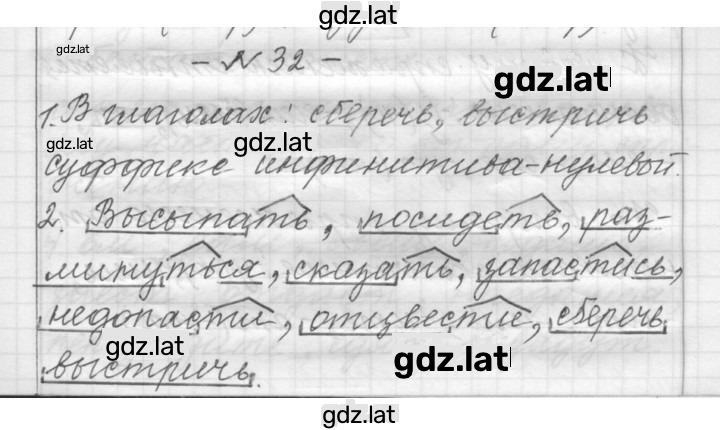 gdz.lat
gdz.lat
- № 32 -
gdz.lat
1. В глаголах: сберечь, выстричь
gdz.lat
суффикс инфинитива - нулевой.
2. Высыпать, посидеть, раз-
минуться, сказать, запастись,
недопасти, отцвести, сберечь
gdz.lat
gdz.lat
выстричь.
gdz.lat